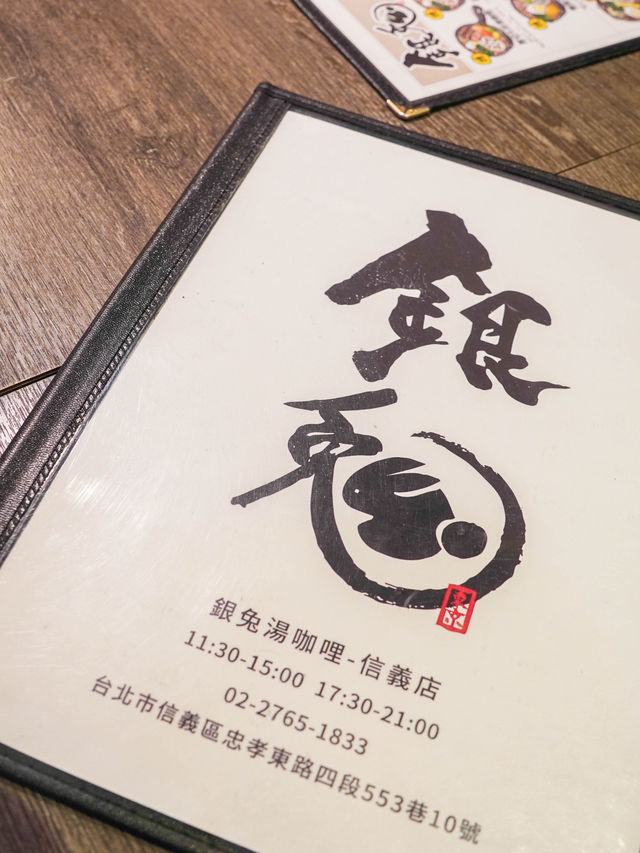 銀
兔
銀兔湯咖哩-信義店
11:30-15:00 17:30-21:00
02-2765-1833
台北市信義區忠孝東路四段553巷10號